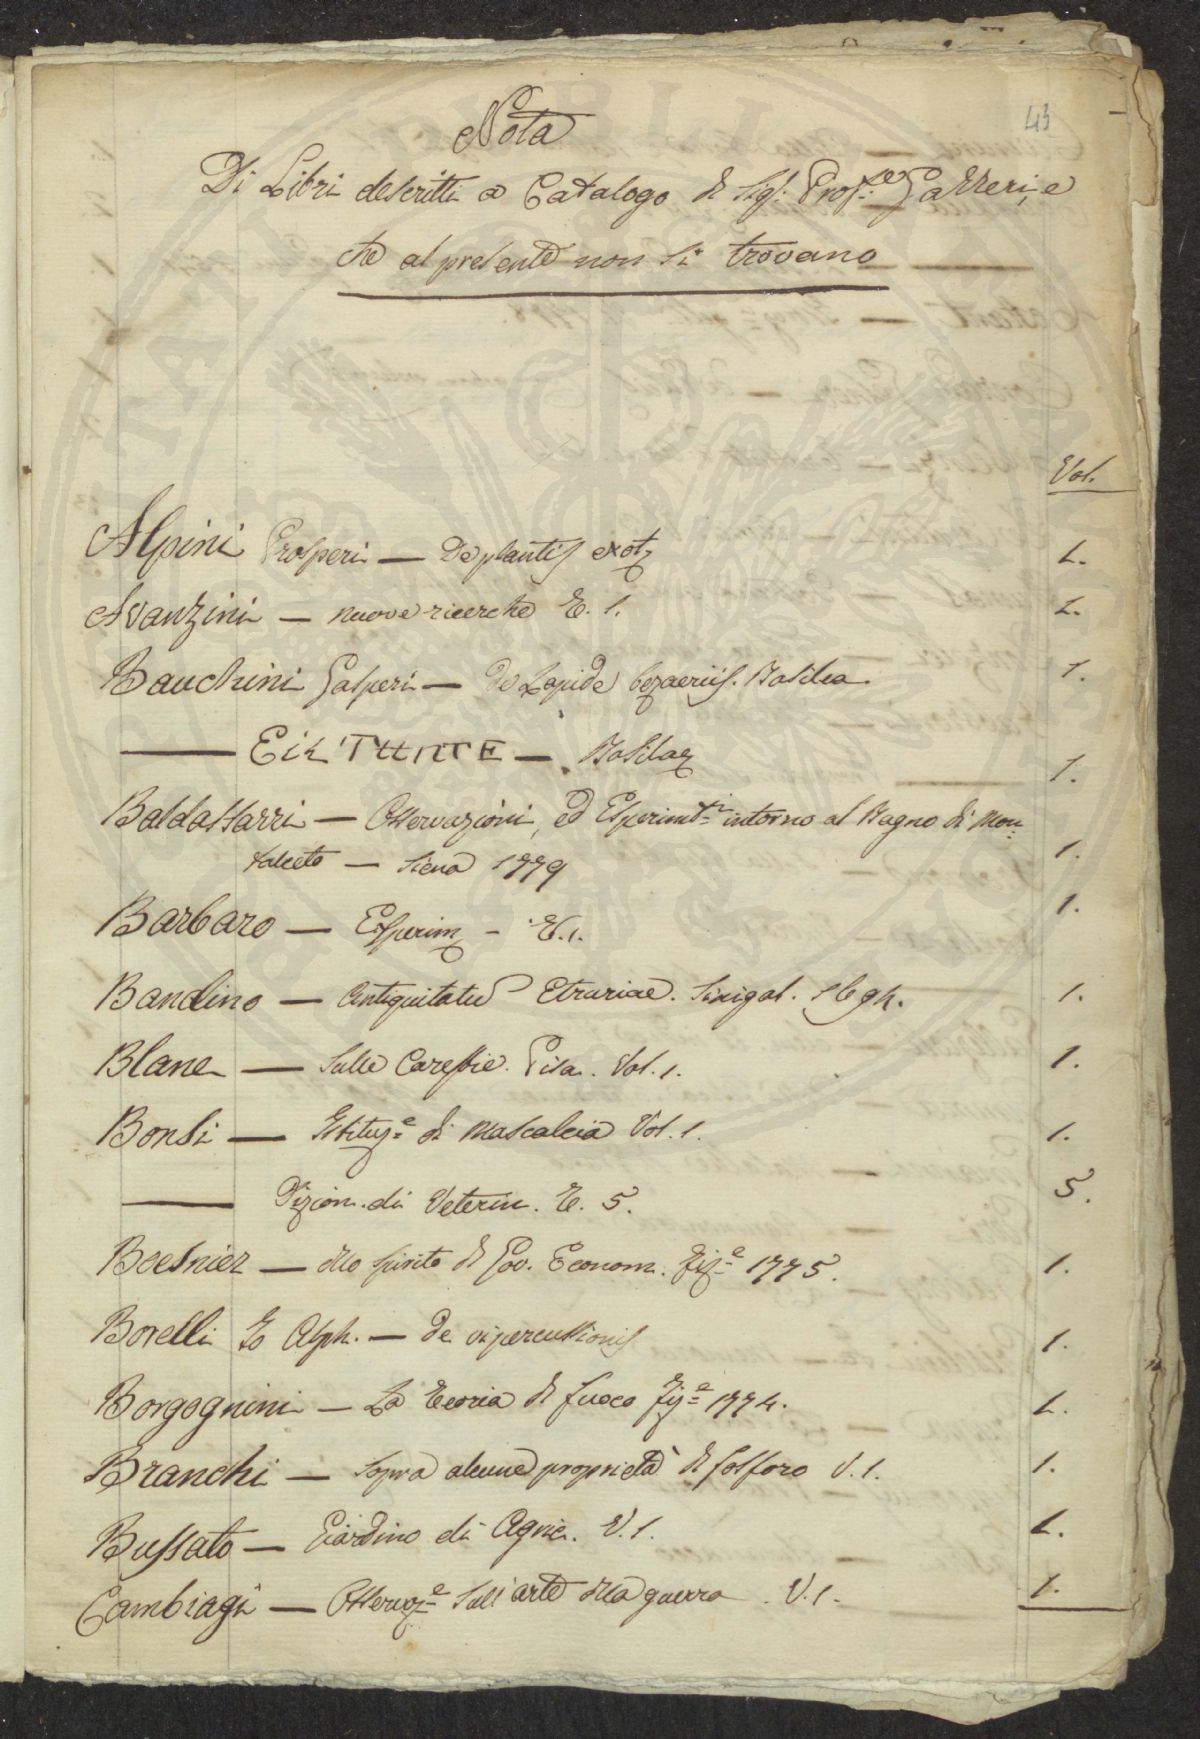 43
Nota
Di Libri descritti a Catalogo di Sigr. Profre. Gazzeri, e
che al presente non si trovano
Vol.
Alpini Prosperi — De plantis exot. 1.
Avanzini — nuove ricerche T. 1. 1.
Bauchini Gasperi — De Lapide bezaeriis. Basilea. 1.
— — Basileae 1.
Baldassarri — Osservazioni, ed Esperimti. intorno al Bagno di Mon-
talceto — Siena 1779 1.
Barbaro — Esperim. - T. 1. 1.
Bandino — Antiquitatū Etruriae. Sinigal. 1.
Blane — Sulle Carestie. Pisa. Vol. 1. 1.
Bonsi — Istituze. di Mascalcia Vol. 1. 1.
— Dizion. di Veterin. T. 5. 5.
Boesnier — dello spirito di Gov. Econom. Fize. 1775. 1.
Borelli Io Alph. — de vi percussionis 1.
Borgognini — La Teoria di fuoco Fize. 1774. 1.
Branchi — Sopra alcune proprietà di fosforo V. 1. 1.
Bussato — Giardino di Agric. V. 1. 1.
Cambiagi — Osservaze. sull'arte della guerra. V. 1. 1.